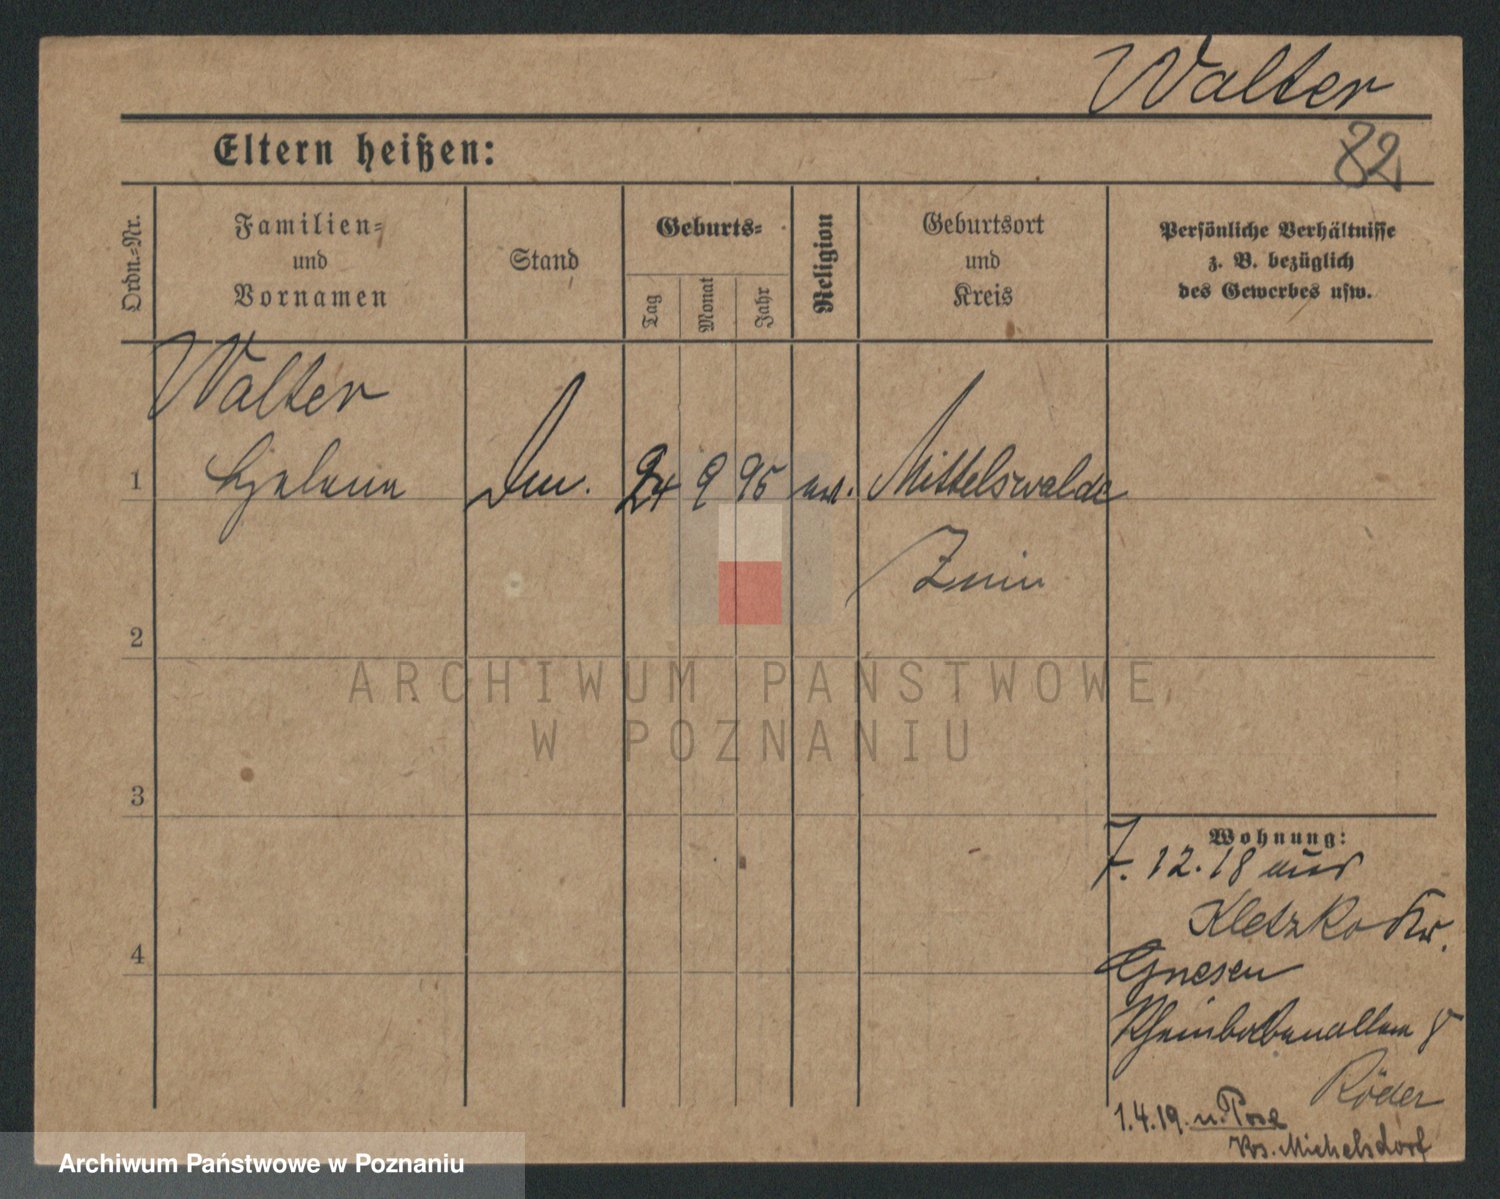 Walter
82
Eltern heißen:
Ordn.=Nr.
Familien=
und
Vornamen
Stand
Geburts=
Tag
Monat
Jahr
Religion
Geburtsort
und
Kreis
Persönliche Verhältnisse
z. B. bezüglich
des Gewerbes usw.
Walter
1 Helene 24 9 95 Mittelswalde
Znin
2
ARCHIWUM PAŃSTWOWE
W POZNANIU
3
Wohnung:
7. 12. 18 aus
Kletzko Kr.
4
Gnesen
Röder
1.4.19. n.
Michelsdorf
Archiwum Państwowe w Poznaniu